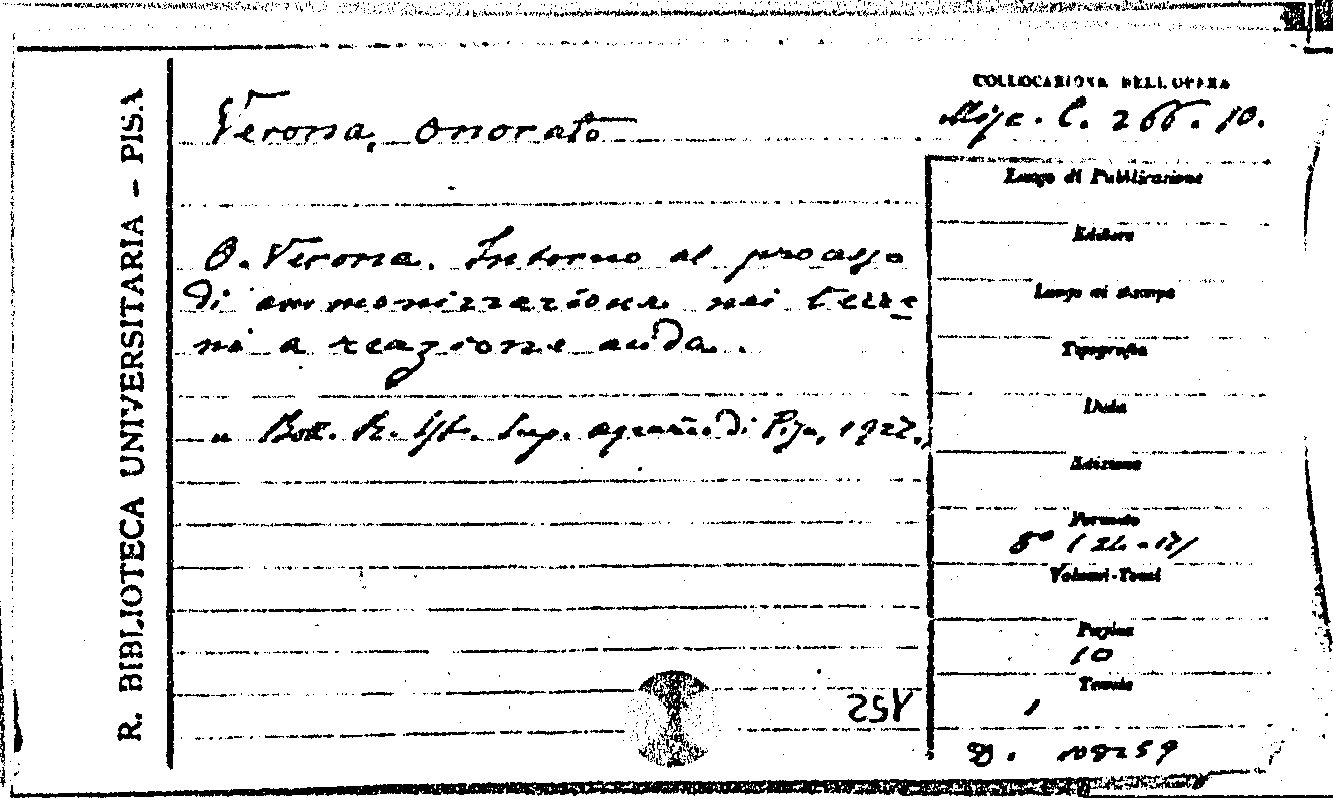 R. BIBLIOTECA UNIVERSITARIA - PISA
Verona, Onorato
COLLOCAZIONE DELL'OPERA
Misc. C. 266. 10.
O. Verona. Intorno al processo
di ammonizzazione nei terre
ni a reazione acida.
Boll. R. Ist. Sup. agrario di Pisa, 1927.
Luogo di Pubblicazione
Editore
Luogo di stampa
Tipografia
Data
Edizione
Formato
8°
Volumi-Tomi
Pagine
10
Tavole
D.